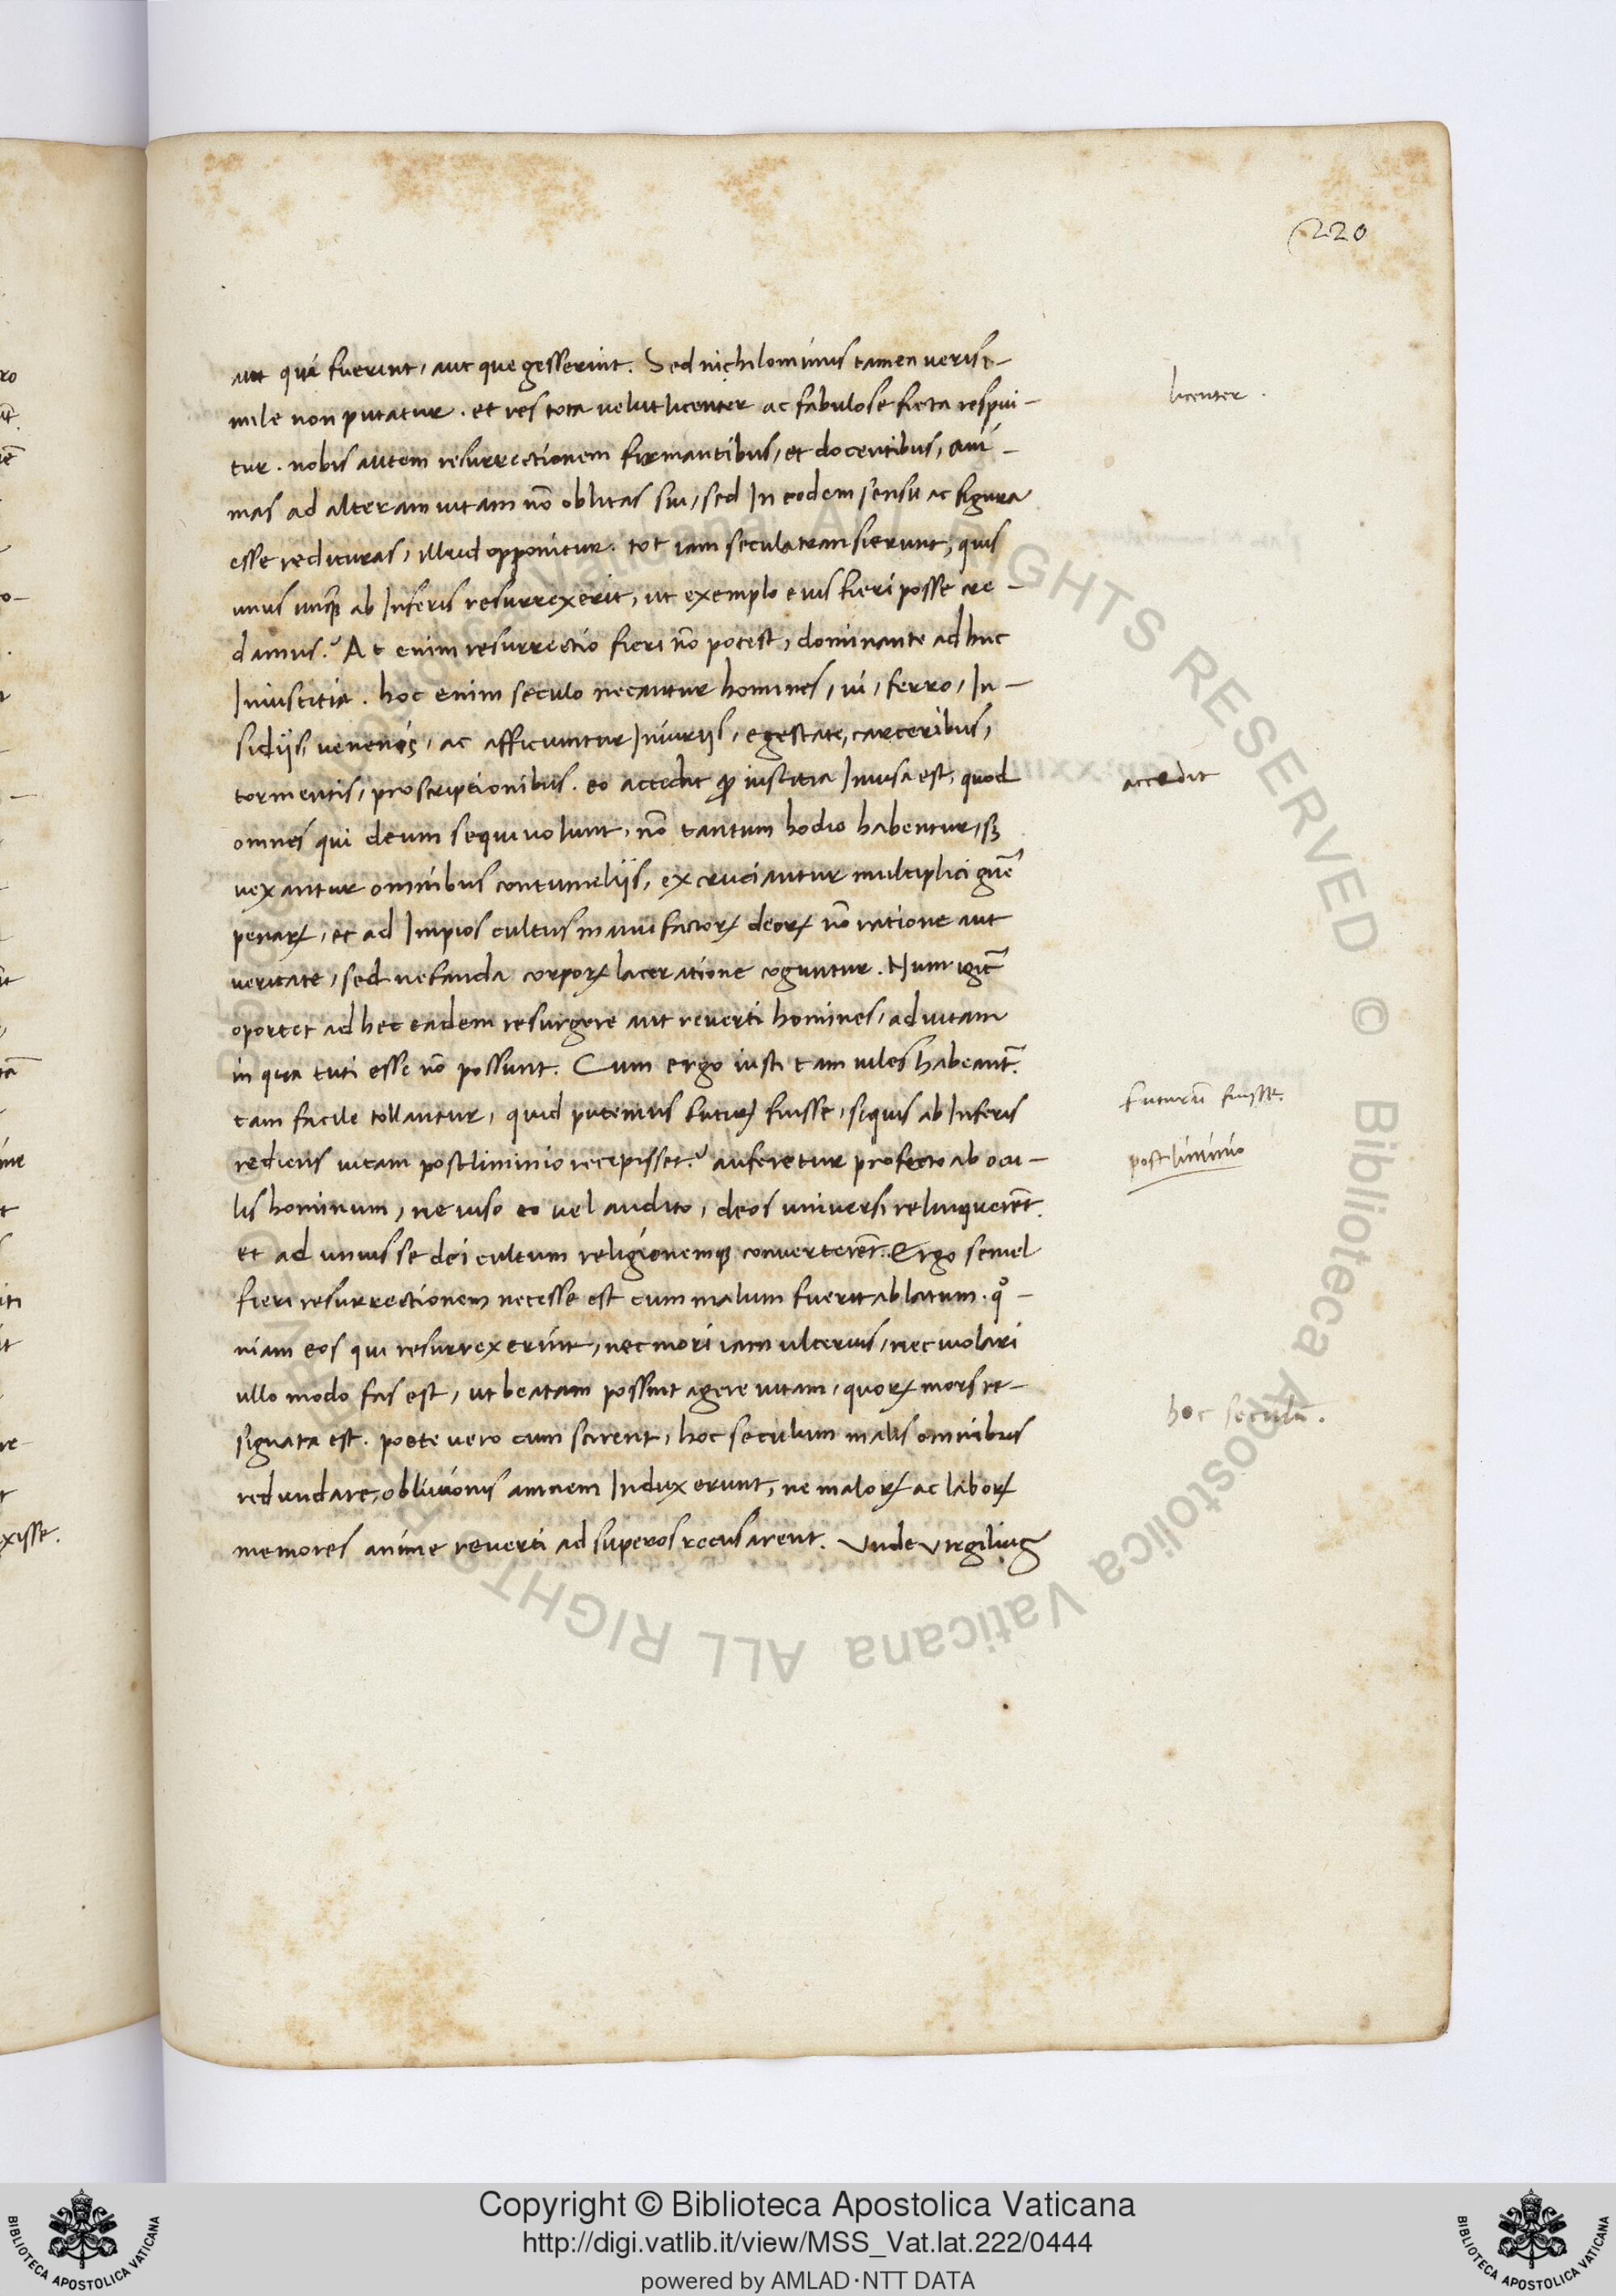 220
aut qui fuerint, aut que gesserint. Sed nichilominus tamen verisi-
mile non putatur. et res tota velut licenter ac fabulose ficta respui-
tur. nobis autem resurrectionem firmantibus, et docentibus, ani-
mas ad alteram vitam nō oblitas sui, sed In eodem sensu ac figura
esse redituras, illud opponitur. tot iam secula transierunt, quis
unus unq̄ ab Inferis resurrexerit, ut exemplo eius fieri posse cre-
damus? At enim resurrectio fieri nō potest, dominante adhuc
Iniustitia. hoc enim seculo necantur homines, ui, ferro, In-
sidijs, venenis, ac afficiuntur Iniurijs, egestate, carceribus,
tormentis, proscriptionibus. eo accedit ꝙ iustitia Inuisa est, quod
omnes qui deum sequi volunt, nō tantum hodio habentur, sꝫ
vexantur omnibus contumelijs, excruciantur multiplici gñe
penaꝝ, et ad Impios cultus manu factoꝝ deoꝝ nō ratione aut
veritate, sed nefanda corpoꝝ laceratione coguntur. Num igit̄
oportet ad hec eadem resurgere aut reverti homines, ad vitam
in qua tuti esse nō possunt. Cum ergo iusti tam viles habeant̄.
tam facile tollantur, quid putemus futuꝝ fuisse, siquis ab Inferis
rediens vitam postliminio recepisset? auferetur profecto ab ocu-
lis hominum, ne viso eo vel audito, deos universi relinquerēt.
et ad unius se dei cultum religionemqꝫ converterēt. Ergo semel
fieri resurrectionem necesse est cum malum fuerit ablatum. qº-
niam eos qui resurrexerint, nec mori iam ulterius, nec violari
ullo modo fas est, ut beatam possint agere vitam, quoꝝ mors re-
signata est. poete vero cum scirent, hoc seculum malis omnibus
redundare, oblivionis amnem Induxerunt, ne maloꝝ ac laboꝝ
memores anime reverti ad superos recusarent. Unde Virgilius
licenter.
accedit
futurū fuisse.
postliminio
hoc seculū.
xisse.
© Biblioteca Apostolica Vaticana ALL RIGHTS RESERVED
Copyright © Biblioteca Apostolica Vaticana
http://digi.vatlib.it/view/MSS_Vat.lat.222/0444
powered by AMLAD·NTT DATA
BIBLIOTECA APOSTOLICA VATICANA
BIBLIOTECA APOSTOLICA VATICANA